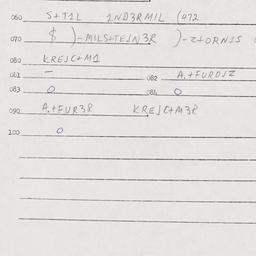 060 S+T1L 1ND3RMIL (472
070 $ )-MILS+TEJN3R )-Z+ORN1S
080 KREJC+M1
081 — 082 A.+FURDJZ
083 O 084 O
090 A.+FUR3R KREJC+M3R
100 O